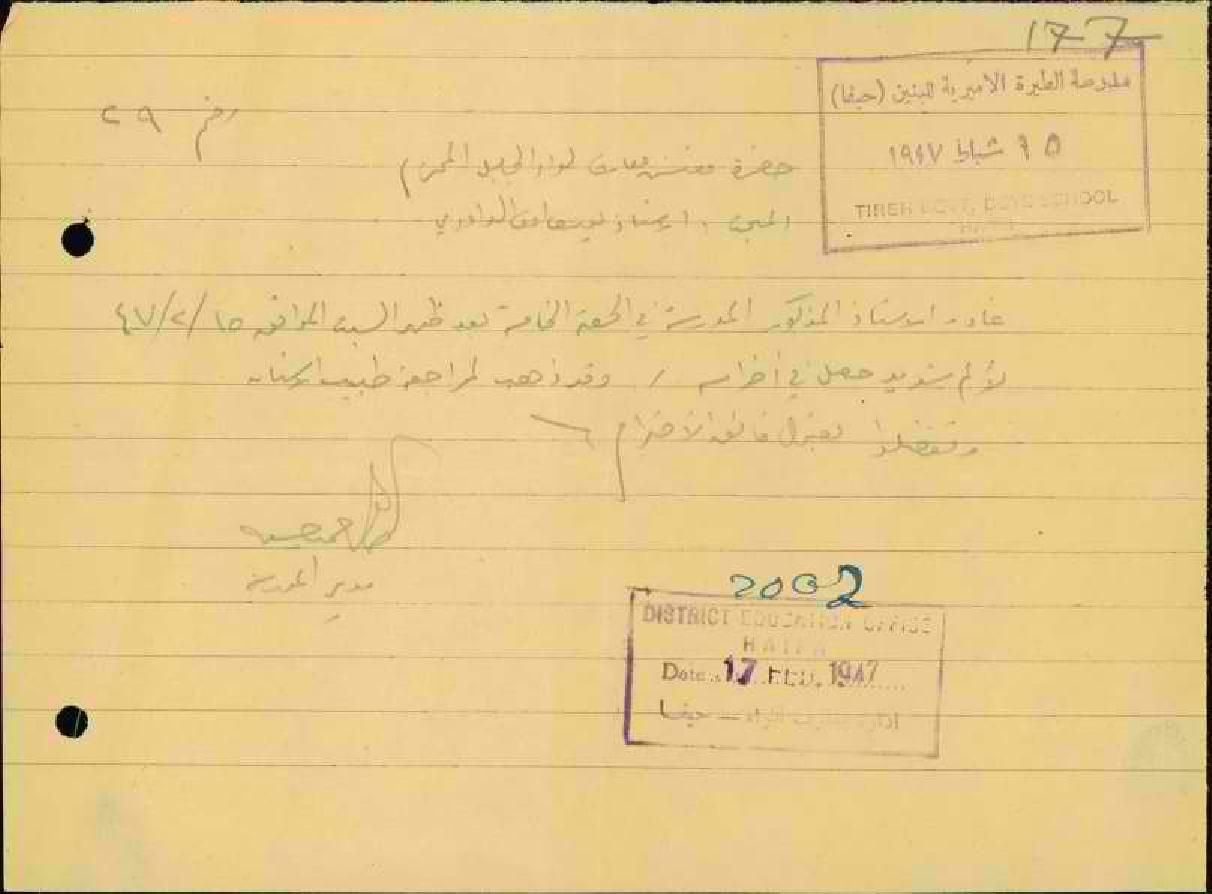 177
مدرسة الطيرة الاميرية للبنين (حيفا)
١٥ شباط ١٩٤٧
TIREH GOVT. BOYS SCHOOL
HAIFA
رقم ٢٩
حضرة مفتش معارف لواء الجليل المحترم
الاستاذ
غادر الاستاذ المذكور المدرسة في الحصة الخامسة بعد ظهر السبت الموافق ١٥/٢/٤٧
لألم شديد حصل في أضراسه / وقد ذهب لمراجعة طبيب الاسنان
وتفضلوا بقبول فائق الاحترام
مدير المدرسة
2002
DISTRICT EDUCATION OFFICE
HAIFA
Date 17 FEB. 1947
ادارة معارف اللواء — حيفا